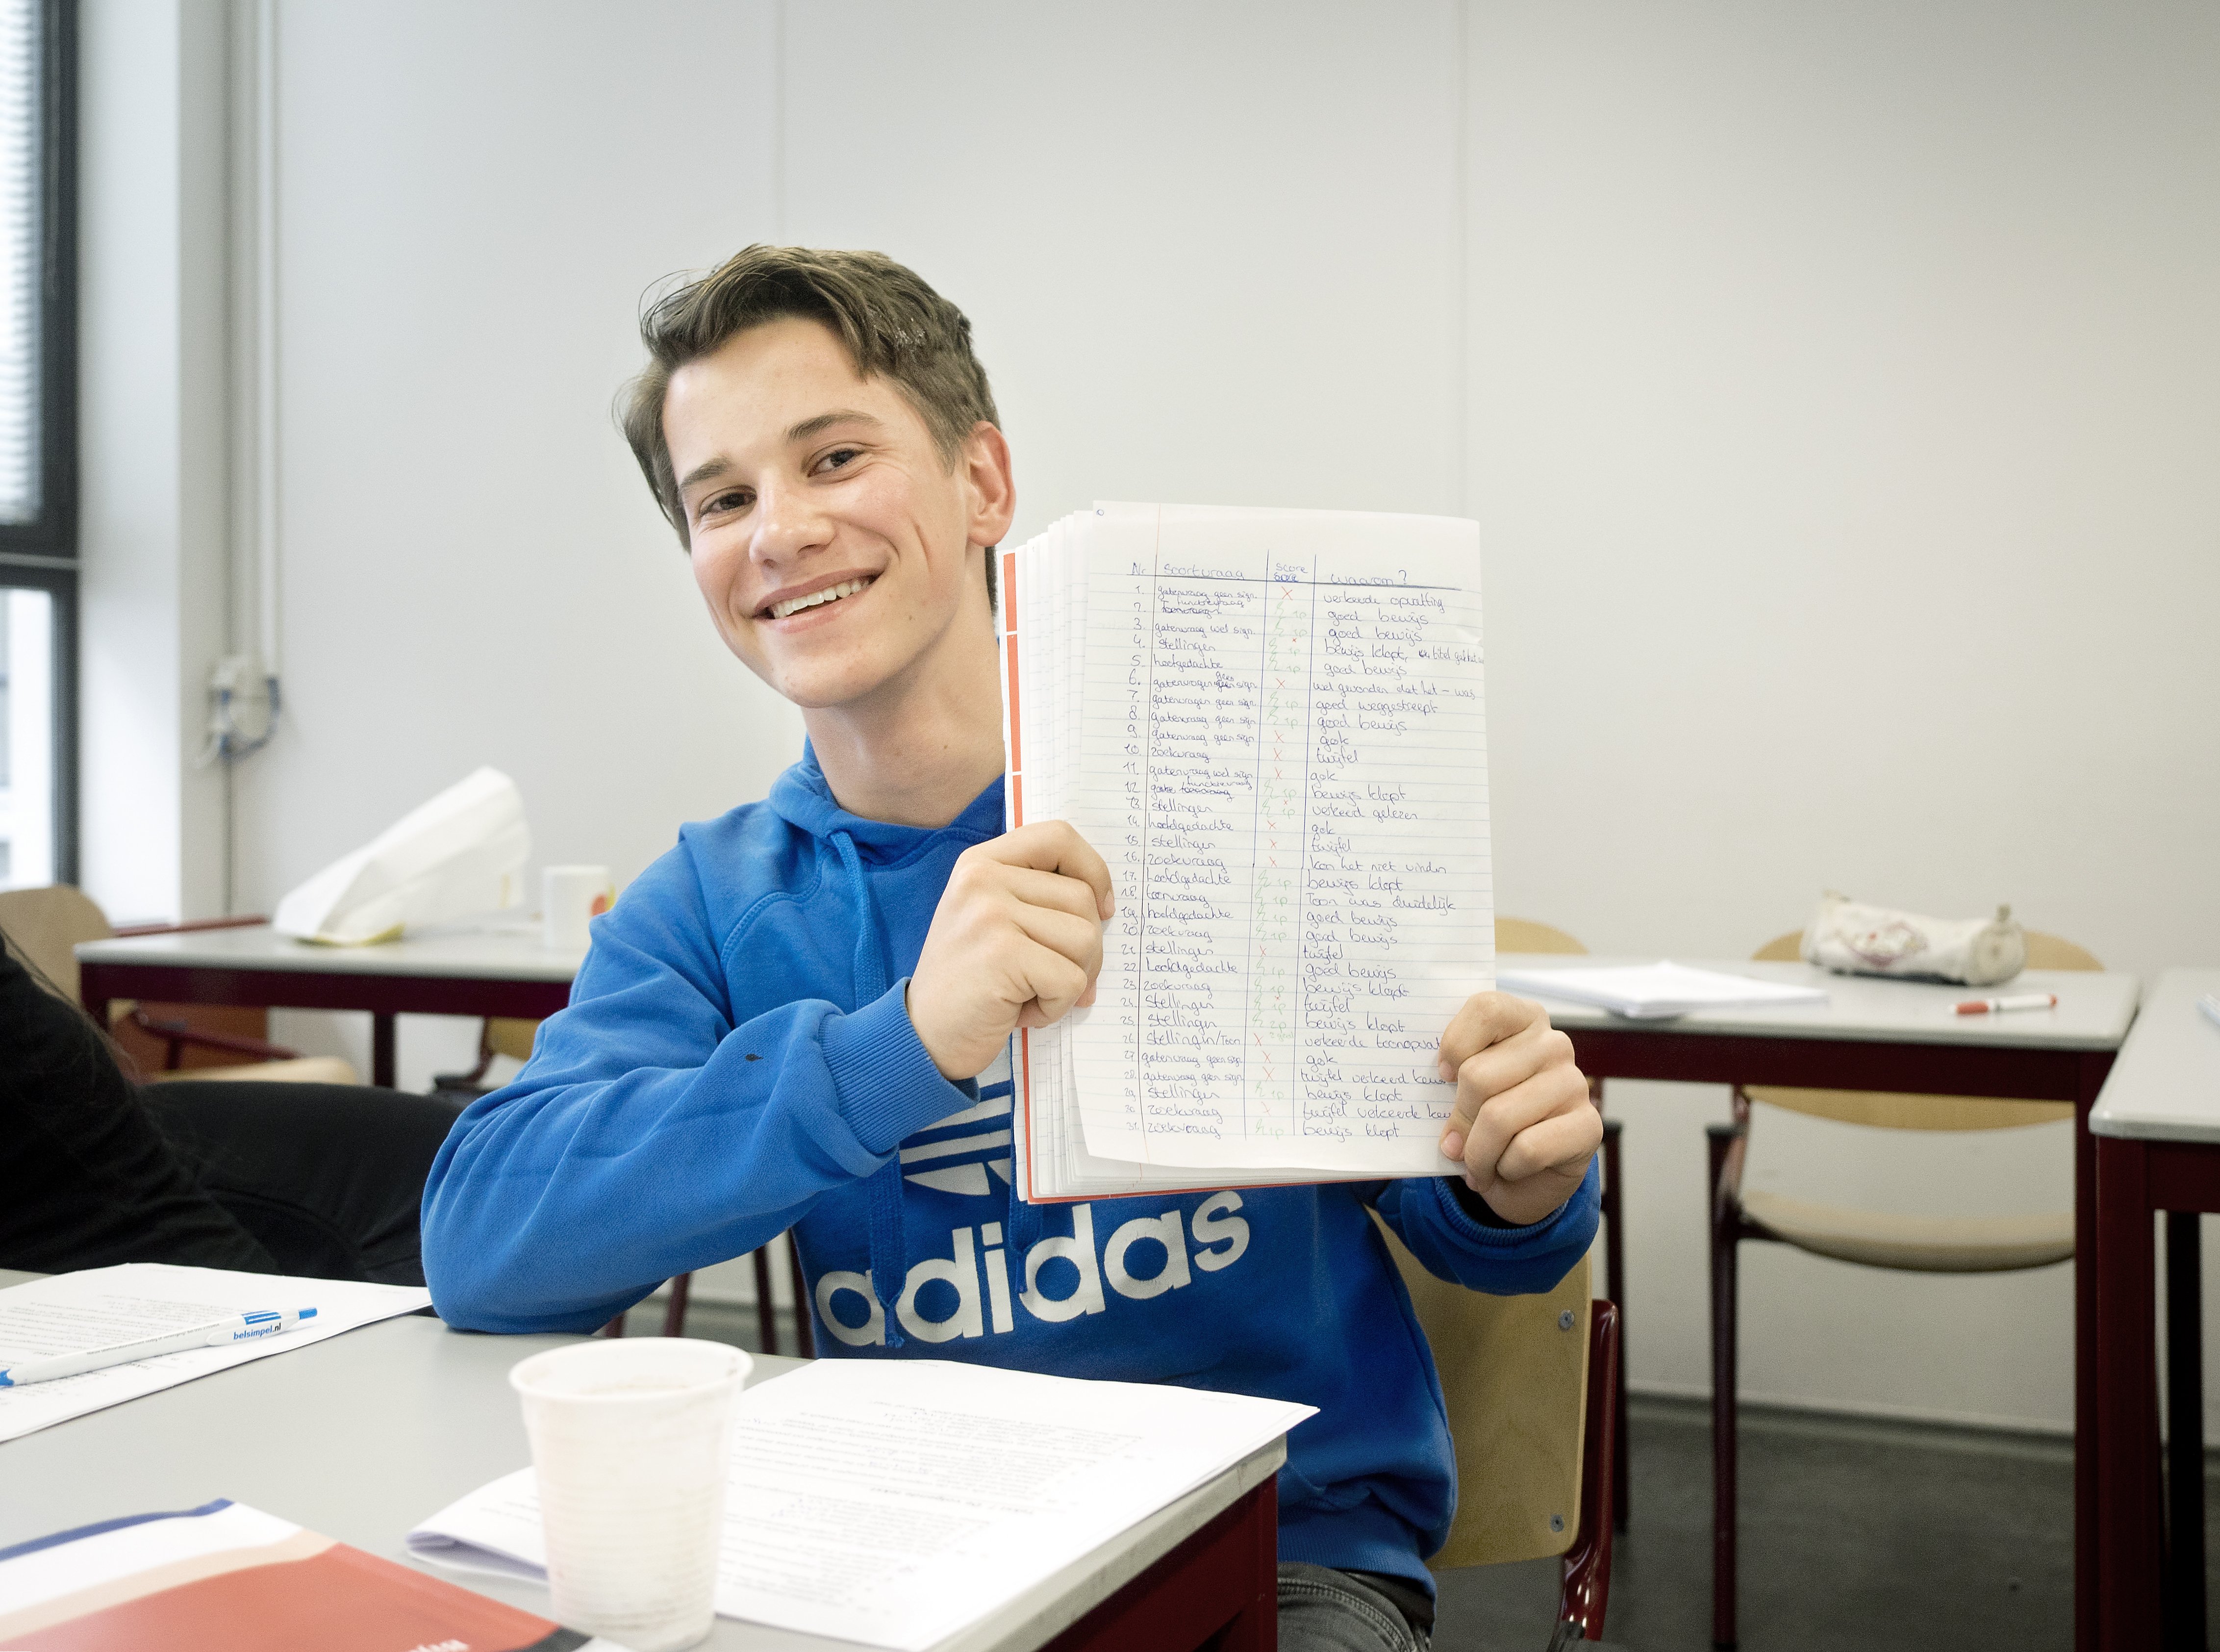 Nr. soort vraag score waarom?
1. gatenvraag geen sign. X verkeerde opvatting
2. functievraag 1p goed bewijs
3. gatenvraag wel sign. 1p goed bewijs
4. stellingen 1p bewijs klopt,
5. hoofdgedachte 1p goed bewijs
6. gatenvragen geen sign. X wel gevonden dat het – was
7. gatenvragen geen sign. 1p goed weggestreept
8. gatenvraag geen sign 1p goed bewijs
9. gatenvraag geen sign X gok
10. zoekvraag X twijfel
11. gatenvraag wel sign. X gok
12. functievraag 1p bewijs klopt
13. stellingen 1p verkeerd gelezen
14. hoofdgedachte X gok
15. stellingen X twijfel
16. zoekvraag X kon het niet vinden
17. hoofdgedachte 1p bewijs klopt
18. toonvraag 1p Toon was duidelijk
19. hoofdgedachte 1p goed bewijs
20. zoekvraag 1p goed bewijs
21. stellingen X twijfel
22. hoofdgedachte 1p goed bewijs
23. zoekvraag 1p bewijs klopt
24. stellingen 1p twijfel
25. stellingen 2p bewijs klopt
26. stellingen/Toon X verkeerde toonopvat
27. gatenvraag geen sign. X gok
28. gatenvraag geen sign X twijfel verkeerd keus
29. stellingen 1p bewijs klopt
30. zoekvraag X twijfel verkeerde keu
31. zoekvraag 1p bewijs klopt
adidas
belsimpel.nl